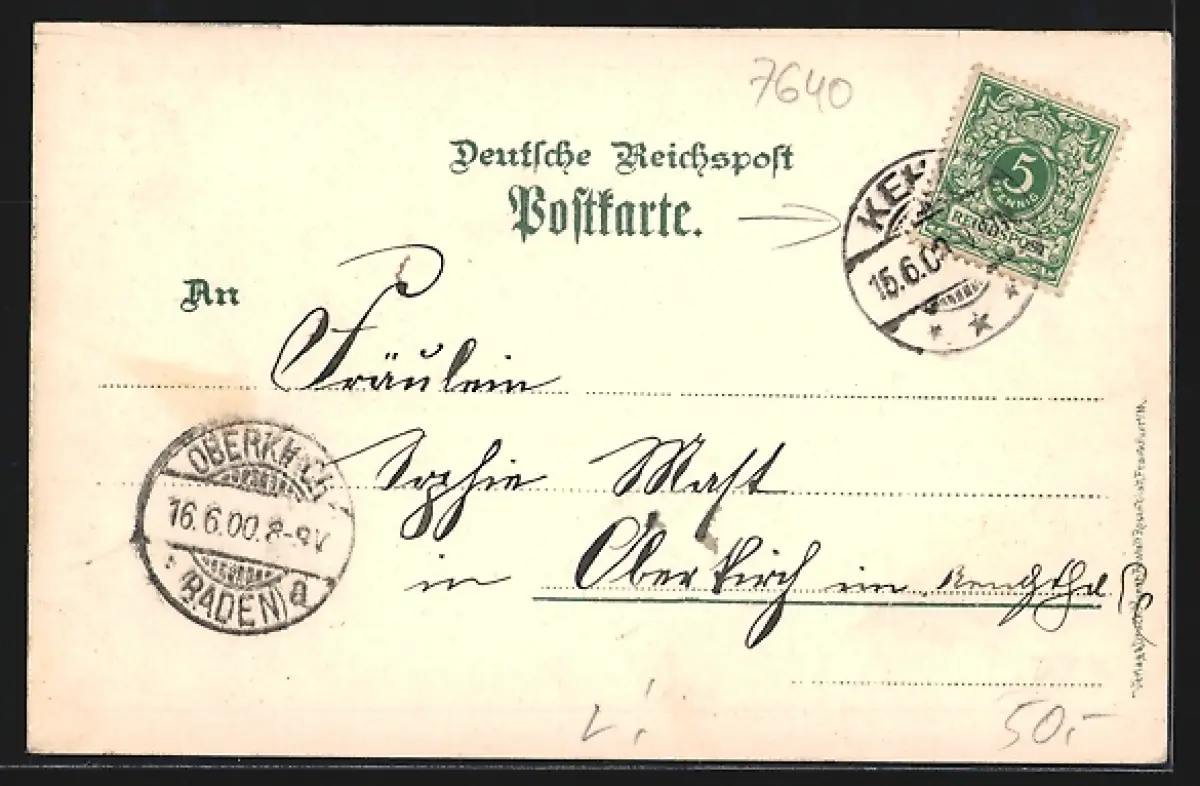 7640
Deutsche Reichspost
Postkarte.
An
KE
15.6.0
5
PFENNIG
REICHSPOST
Fräulein
Sophie Mast
in Oberkirch im Rengthal
OBERKIRCH
16.6.00.8-9V
(BADEN) a
50.-